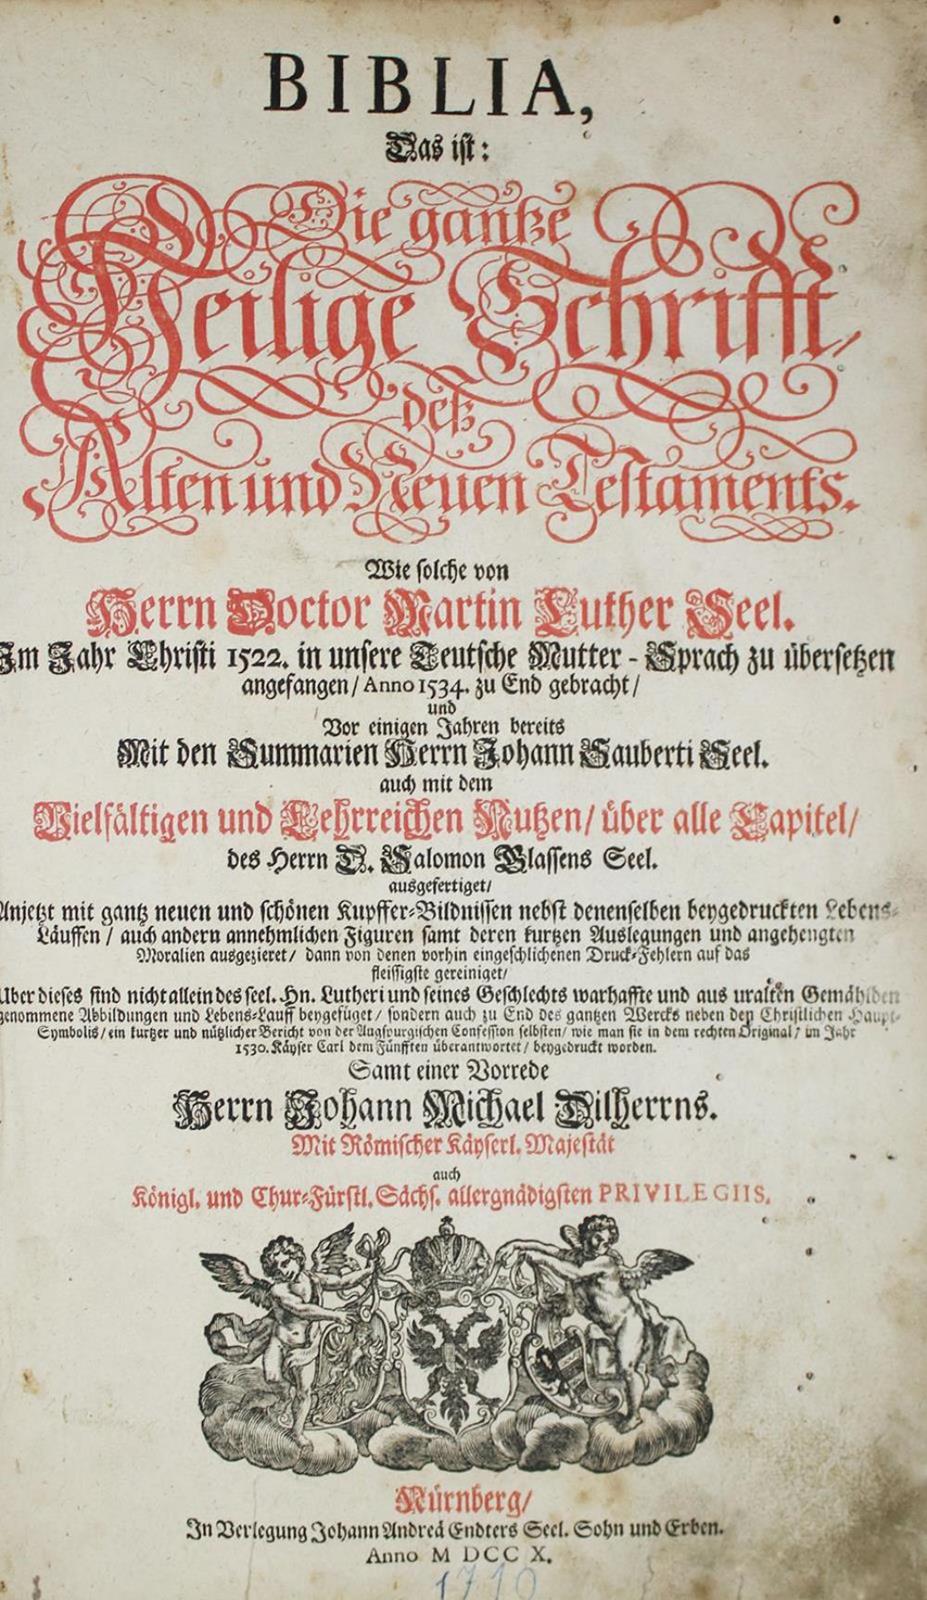 BIBLIA,
Das ist:
Die gantze
Heilige Schrifft,
deß
Alten und Neuen Testaments.
Wie solche von
Herrn Doctor Martin Luther Seel.
Im Jahr Christi 1522. in unsere Teutsche Mutter-Sprach zu übersetzen
angefangen/ Anno 1534. zu End gebracht/
und
Vor einigen Jahren bereits
Mit den Summarien Herrn Johann Sauberti Seel.
auch mit dem
Vielfältigen und Lehrreichen Nutzen/ über alle Capitel/
des Herrn D. Salomon Glassens Seel.
ausgefertiget/
Anjetzt mit gantz neuen und schönen Kupffer-Bildnissen nebst denenselben beygedruckten Lebens-
Läuffen/ auch andern annehmlichen Figuren samt deren kurtzen Auslegungen und angehengten
Moralien ausgezieret/ dann von denen vorhin eingeschlichenen Druck-Fehlern auf das
fleissigste gereiniget/
Uber dieses sind nicht allein des seel. Hn. Lutheri und seines Geschlechts warhaffte und aus uralten Gemählden
genommene Abbildungen und Lebens-Lauff beygefüget/ sondern auch zu End des gantzen Wercks neben den Christlichen Haupt-
Symbolis/ ein kurtzer und nützlicher Bericht von der Augspurgischen Confession selbsten/ wie man sie in dem rechten Original/ im Jahr
1530. Käyser Carl dem Fünfften überantwortet/ beygedruckt worden.
Samt einer Vorrede
Herrn Johann Michael Dilherrns.
Mit Römischer Käyserl. Majestät
auch
Königl. und Chur-Fürstl. Sächs. allergnädigsten PRIVILEGIIS.
Nürnberg/
In Verlegung Johann Andreä Endters Seel. Sohn und Erben.
Anno M DCC X.
1710